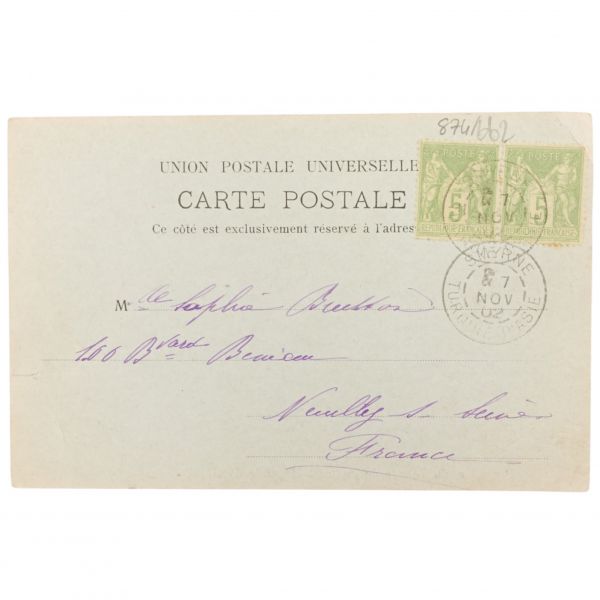 874/662
UNION POSTALE UNIVERSELLE
CARTE POSTALE
Ce côté est exclusivement réservé à l'adres
POSTE POSTE
5 5
REPUBLIQUE FRANÇAISE
7
NOV
02
SMYRNE
7
NOV
02
TURQUIE D'ASIE
Mlle Sophie
100 Bvard Bineau
Neuilly s Seine
France